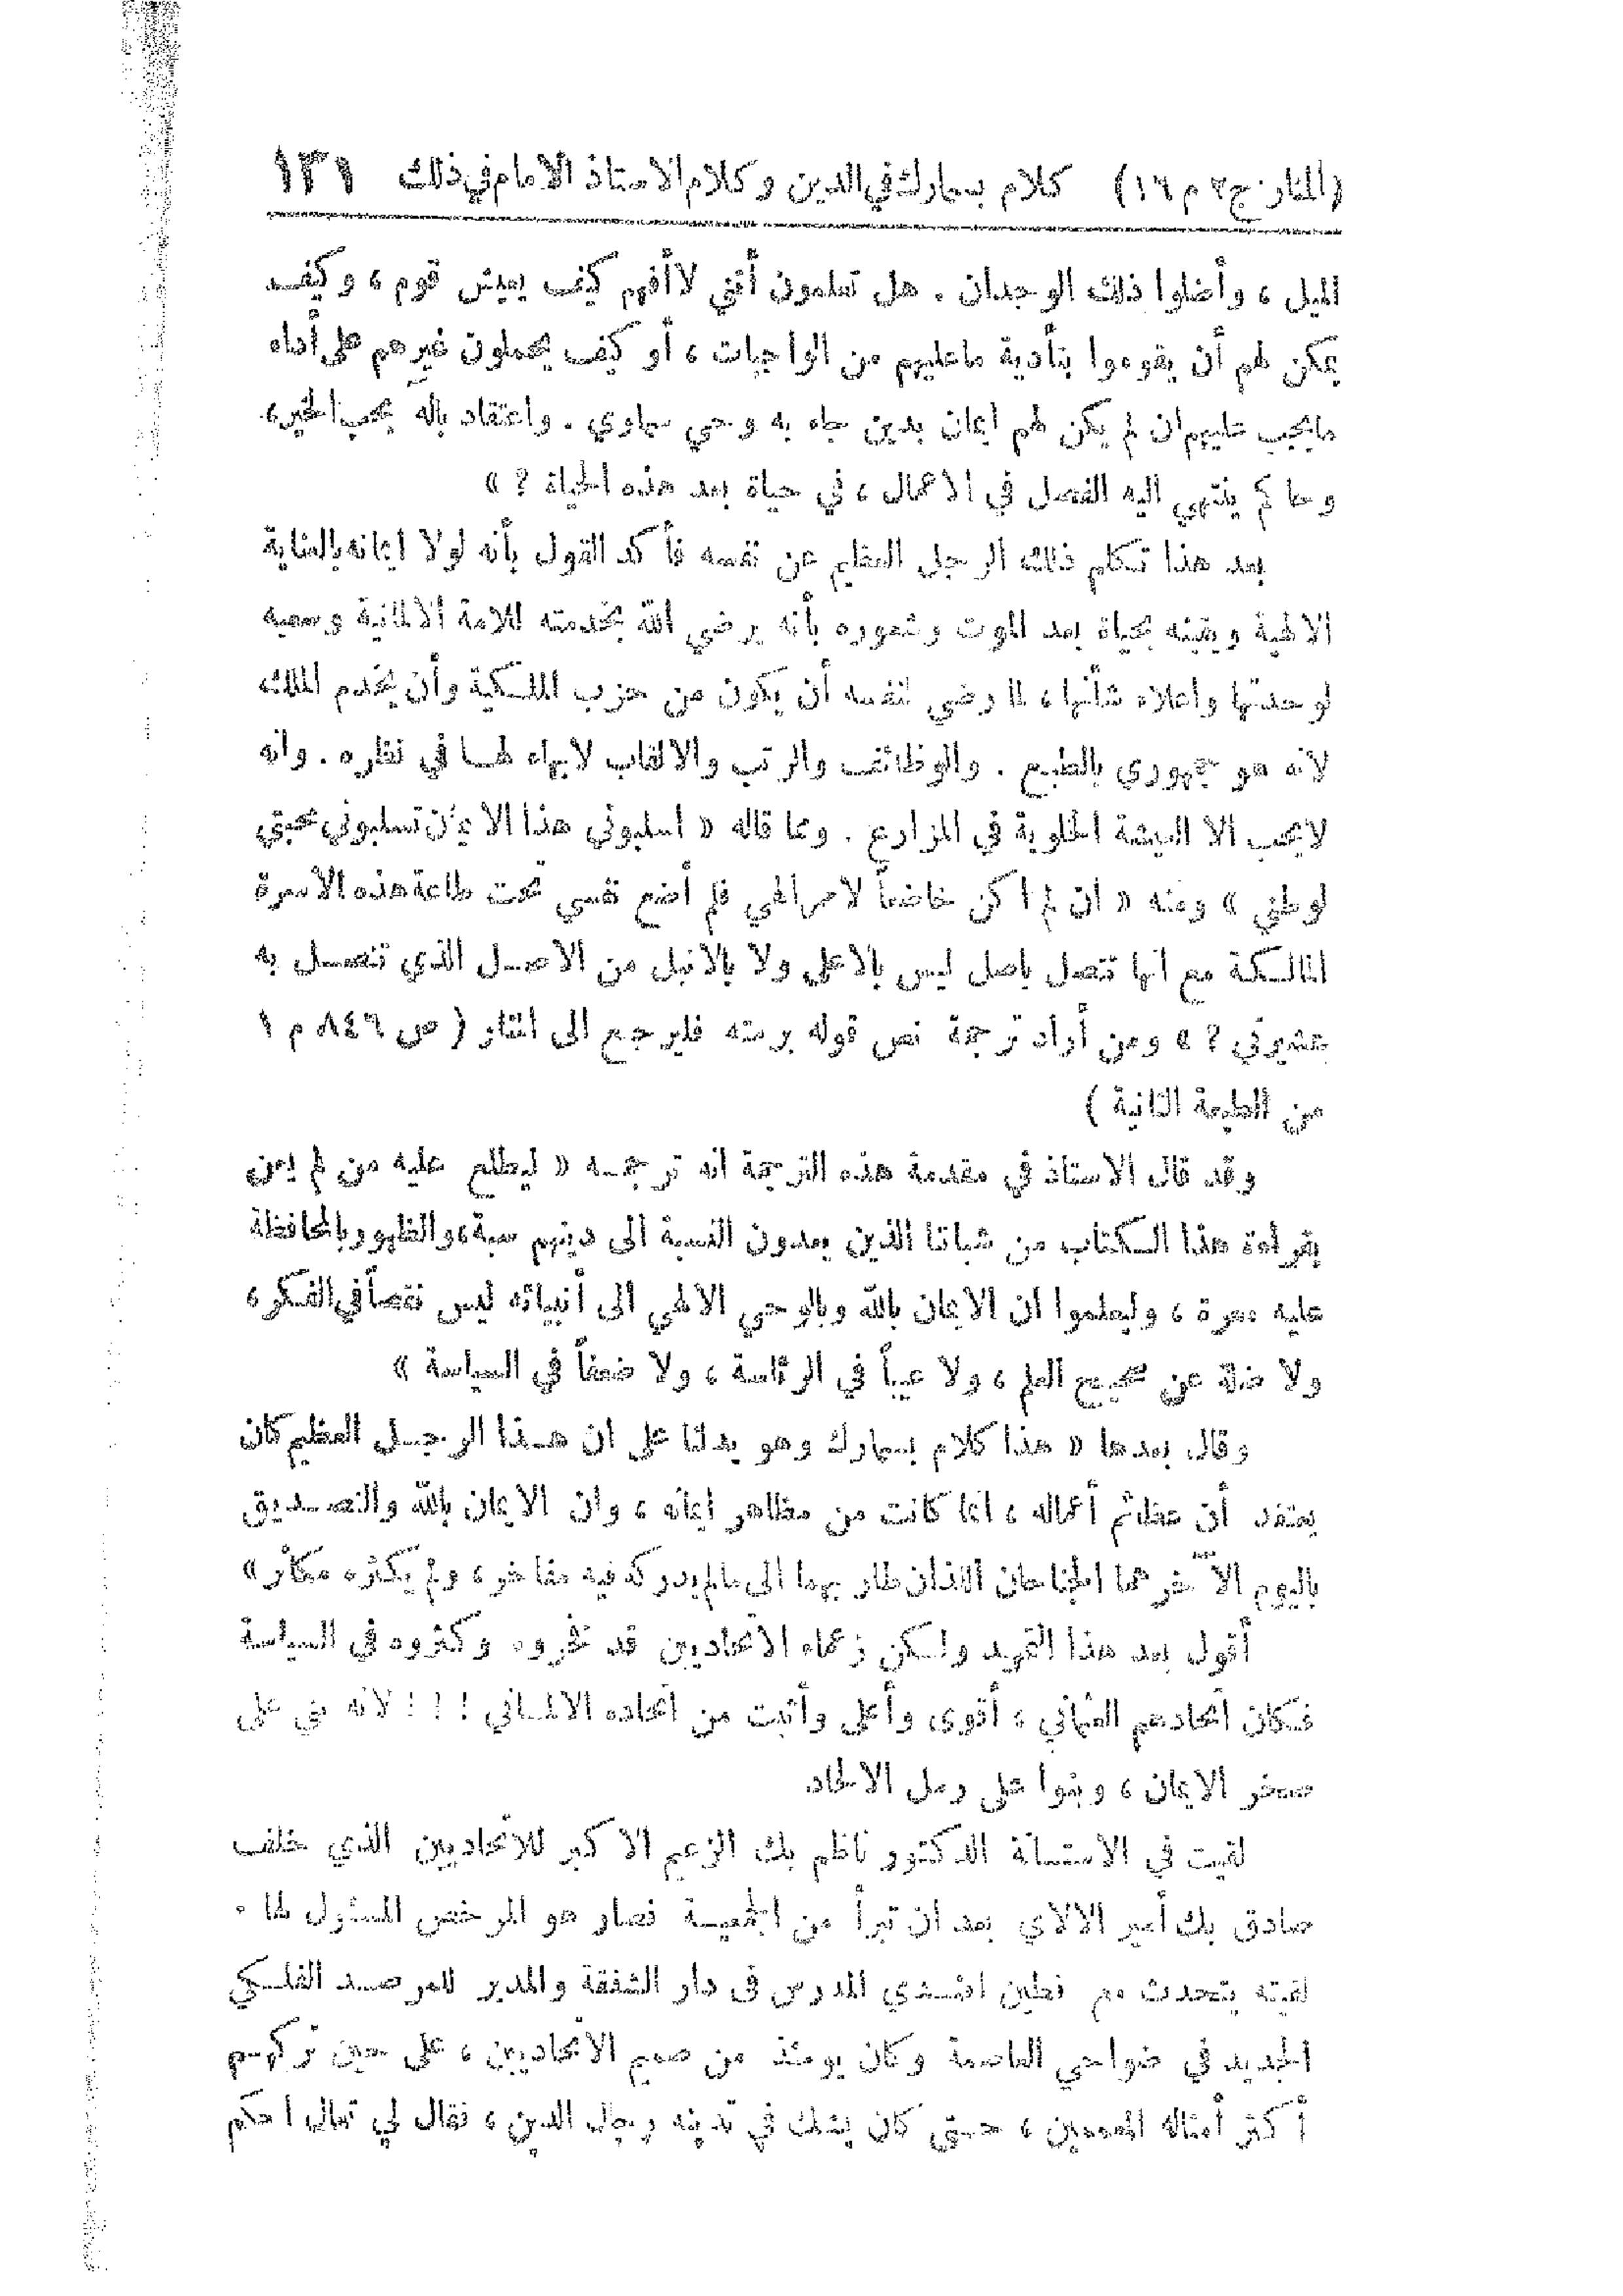 (المنار ج ٢ م ١٦) كلام بسمارك في الدين وكلام الاستاذ الامام في ذلك ١٣١
الميل ، وأضلوا ذلك الوجدان . هل تعلمون أنني لا أفهم كيف يعيش قوم ، وكيف
يمكن لهم أن يقوموا بتأدية ماعليهم من الواجبات ، أو كيف يحملون غيرهم على أداء
مايجب عليهم ان لم يكن لهم ايمان بدين جاء به وحي سماوي . واعتقاد باله يحب الخير ،
وحاكم ينتهي اليه الفصل في الاعمال ، في حياة بعد هذه الحياة ؟ »
بعد هذا تكلم ذلك الرجل العظيم عن نفسه فأكد القول بأنه لولا ايمانه بالعناية
الالهية ويقينه بحياة بعد الموت وشعوره بأنه يرضي الله بخدمته للامة الالمانية وسعيه
لوحدتها واعلاء شأنها ، لما رضي لنفسه أن يكون من حزب الملكية وأن يخدم الملك
لانه هو جمهوري بالطبع . والوظائف والرتب والالقاب لابهاء لها في نظره . وانه
لايحب الا العيشة الخلوية في المزارع . ومما قاله « اسلبوني هذا الايمان تسلبوني محبتي
لوطني » ومنه « ان لم اكن خاضعاً لامر الهي فلم أضع نفسي تحت طاعة هذه الاسرة
المالكة مع انها تتصل باصل ليس بالاعلى ولا بالانبل من الاصل الذي تتصل به
عشيرتي ؟ » ومن أراد ترجمة نص قوله برمته فليرجع الى المنار ( ص ٨٤٦ م ١
من الطبعة الثانية )
وقد قال الاستاذ في مقدمة هذه الترجمة انه ترجمه « ليطلع عليه من لم يعن
بقراءة هذا الكتاب من شباننا الذين يعدون النسبة الى دينهم سبة ، والظهور بالمحافظة
عليه معرة ، وليعلموا ان الايمان بالله وبالوحي الالهي الى أنبيائه ليس نقصاً في الفكر ،
ولا ضلة عن صحيح العلم ، ولا عيباً في الرئاسة ، ولا ضعفاً في السياسة »
وقال بعدها « هذا كلام بسمارك وهو يدلنا على ان هذا الرجل العظيم كان
يعتقد أن عظائم أعماله ، انما كانت من مظاهر ايمانه ، وان الايمان بالله والتصديق
باليوم الآخر هما الجناحان اللذان طار بهما الى مالم يدركه فيه مفاخر ، ولم يكثره مكاثر »
أقول بعد هذا التمهيد ولكن زعماء الاتحاديين قد فخروه وكثروه في السياسة
فكان اتحادهم العثماني ، أقوى وأعلى وأثبت من اتحاده الالماني ! ! ! لانه بني على
صخر الايمان ، وبنوا على رمل الالحاد
لقيت في الاستانة الدكتور ناظم بك الزعيم الاكبر للاتحاديين الذي خلف
صادق بك أمير الالاي بعد ان تبرأ من الجمعية فصار هو المرخص المسئول لها .
لقيته يتحدث مع فطين افندي المدرس في دار الشفقة والمدير للمرصد الفلكي
الجديد في ضواحي العاصمة وكان يومئذ من صميم الاتحاديين ، على حين تركهم
أكثر أمثاله المعممين ، حتى كان يشك في تدينه رجال الدين ، فقال لي تعال احكم